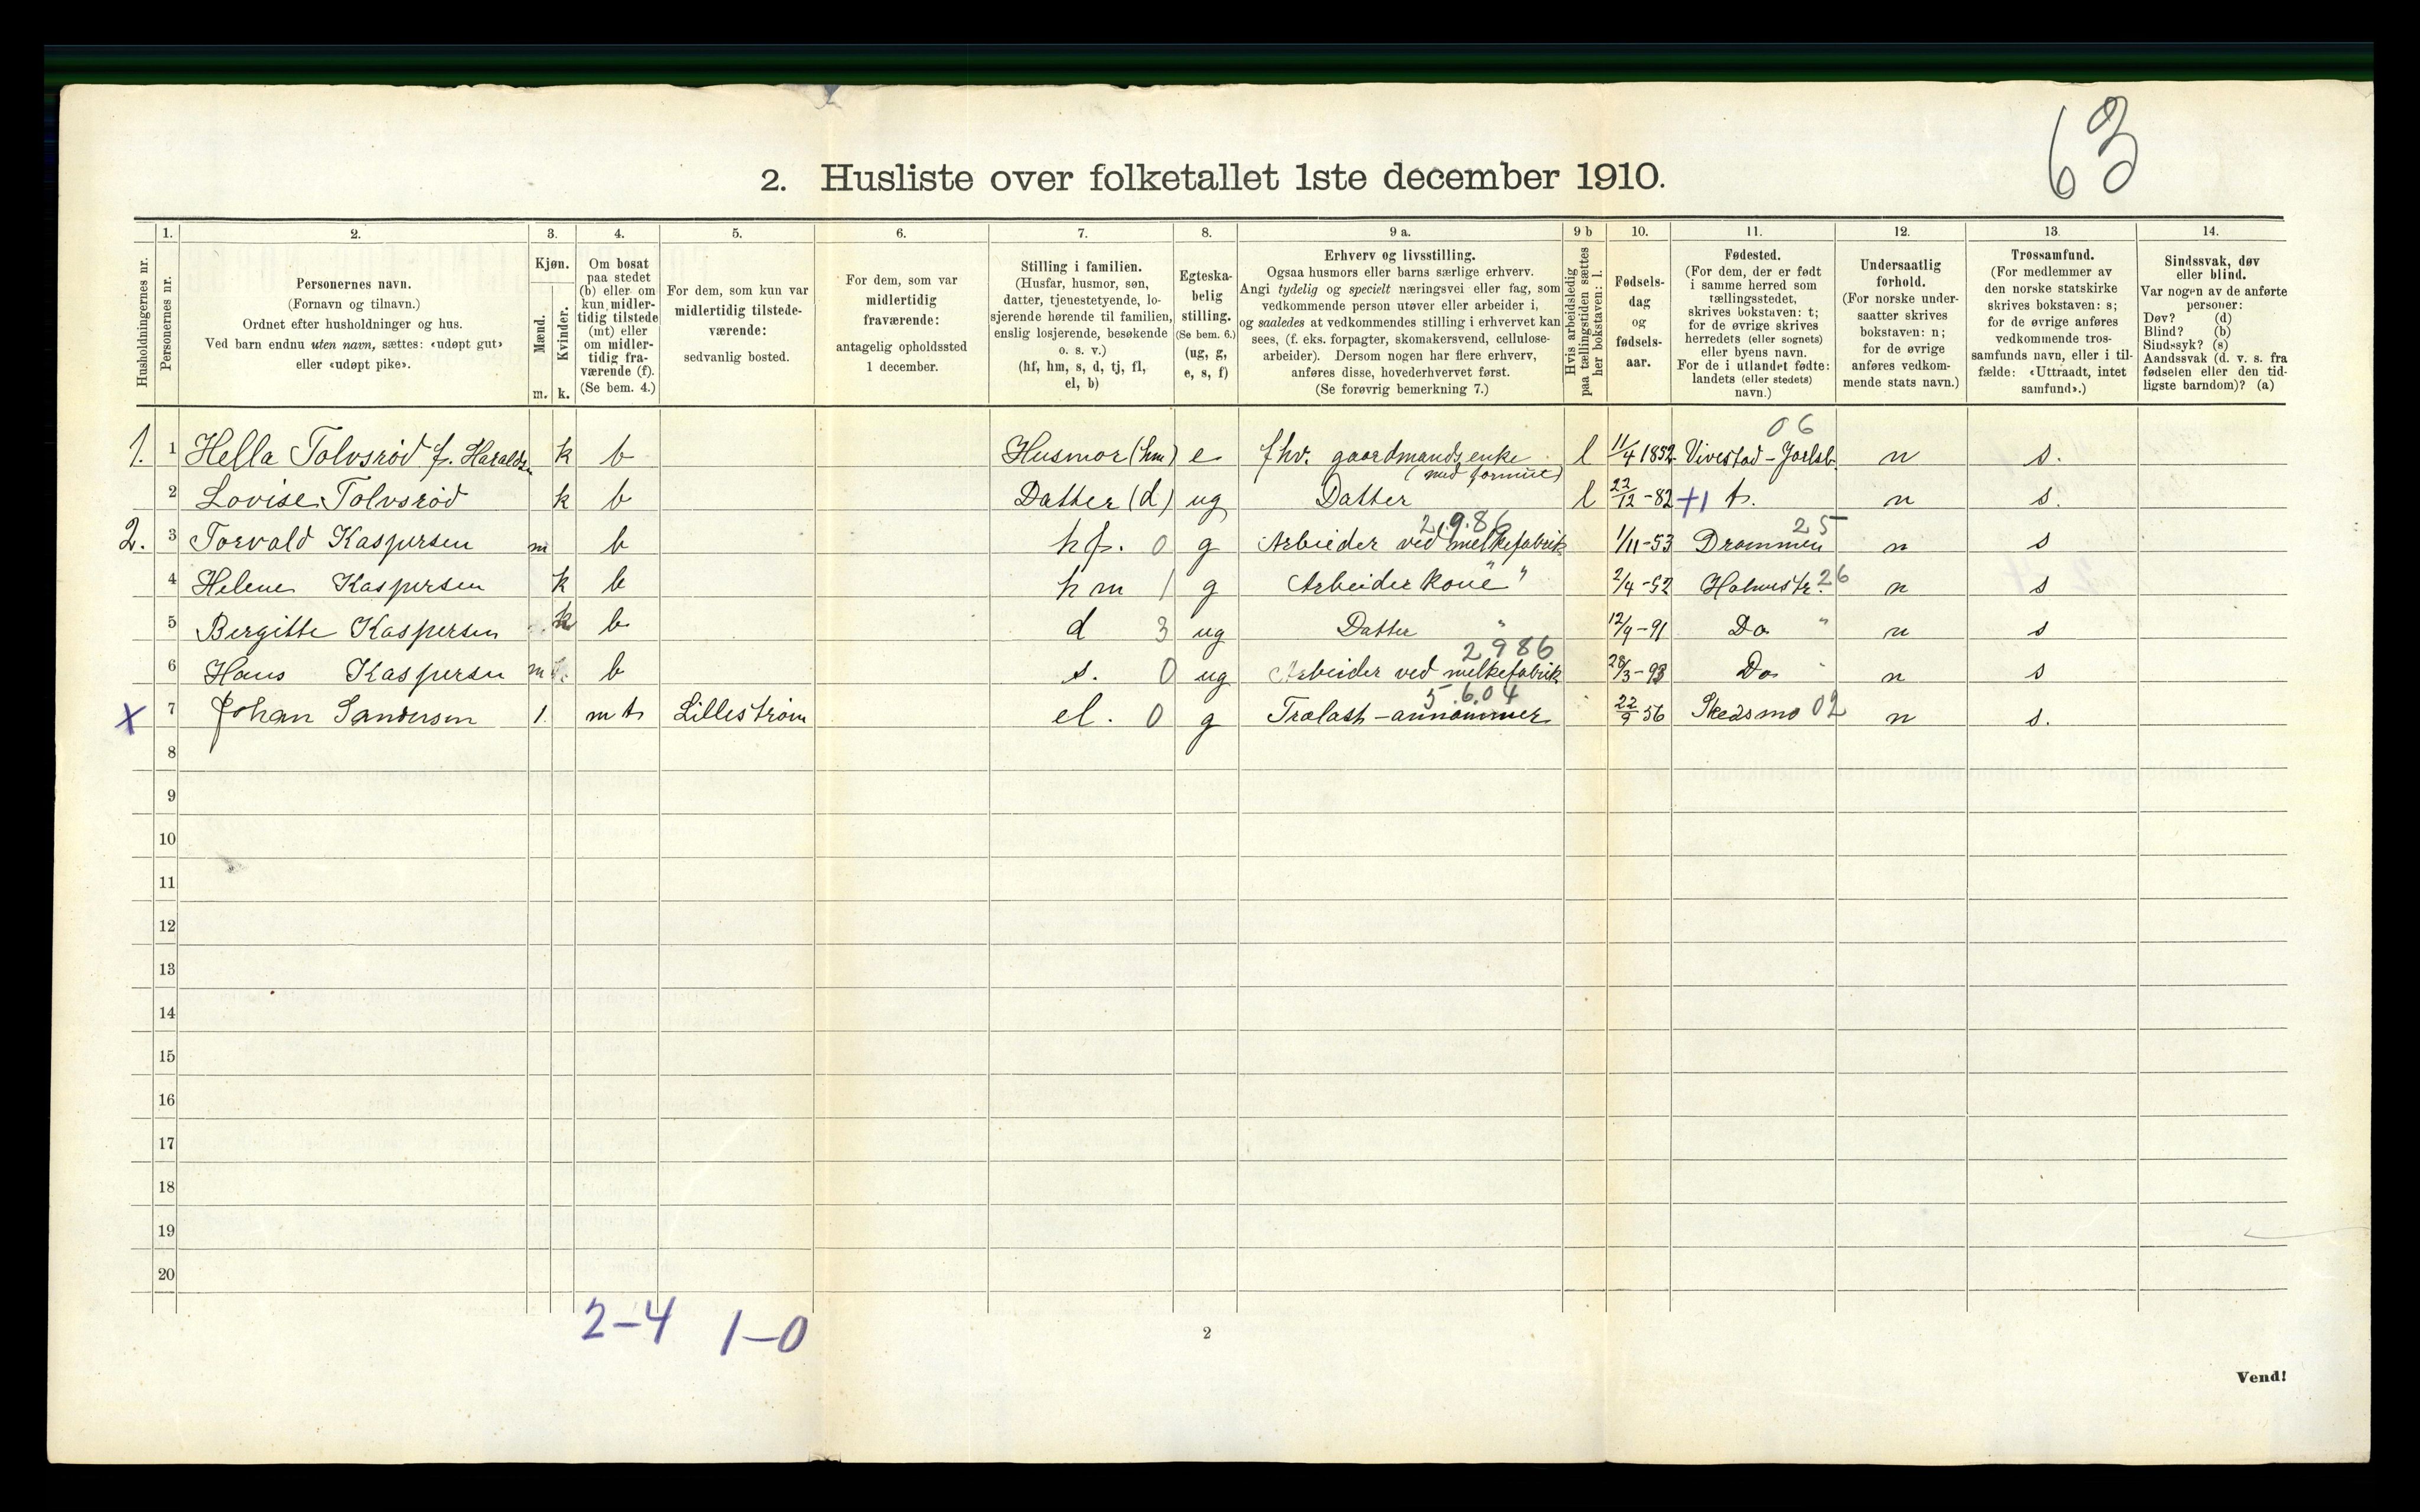 63
2. Husliste over folketallet 1ste december 1910.
Husholdningernes nr.
1.
Personernes nr.
2.
Personernes navn.
(Fornavn og tilnavn.)
Ordnet efter husholdninger og hus.
Ved barn endnu uten navn, sættes: «udøpt gut»
eller «udøpt pike».
3.
Kjøn.
Mænd.
Kvinder.
m. k.
4.
Om bosat
paa stedet
(b) eller om
kun midler-
tidig tilstede
(mt) eller
om midler-
tidig fra-
værende (f).
(Se bem. 4.)
5.
For dem, som kun var
midlertidig tilstede-
værende:
sedvanlig bosted.
6.
For dem, som var
midlertidig
fraværende:
antagelig opholdssted
1 december.
7.
Stilling i familien.
(Husfar, husmor, søn,
datter, tjenestetyende, lo-
sjerende hørende til familien,
enslig losjerende, besøkende
o. s. v.)
(hf, hm, s, d, tj, fl,
el, b)
8.
Egteska-
belig
stilling.
(Se bem. 6.)
(ug, g,
e, s, f)
9 a.
Erhverv og livsstilling.
Ogsaa husmors eller barns særlige erhverv.
Angi tydelig og specielt næringsvei eller fag, som
vedkommende person utøver eller arbeider i,
og saaledes at vedkommendes stilling i erhvervet kan
sees, (f. eks. forpagter, skomakersvend, cellulose-
arbeider). Dersom nogen har flere erhverv,
anføres disse, hovederhvervet først.
(Se forøvrig bemerkning 7.)
9 b
Hvis arbeidsledig
paa tællingstiden sættes
her bokstaven: l.
10.
Fødsels-
dag
og
fødsels-
aar.
11.
Fødested.
(For dem, der er født
i samme herred som
tællingsstedet,
skrives bokstaven: t;
for de øvrige skrives
herredets (eller sognets)
eller byens navn.
For de i utlandet fødte:
landets (eller stedets)
navn.)
12.
Undersaatlig
forhold.
(For norske under-
saatter skrives
bokstaven: n;
for de øvrige
anføres vedkom-
mende stats navn.)
13.
Trossamfund.
(For medlemmer av
den norske statskirke
skrives bokstaven: s;
for de øvrige anføres
vedkommende tros-
samfunds navn, eller i til-
fælde: «Uttraadt, intet
samfund».)
14.
Sindssvak, døv
eller blind.
Var nogen av de anførte
personer:
Døv? (d)
Blind? (b)
Sindssyk? (s)
Aandssvak (d. v. s. fra
fødselen eller den tid-
ligste barndom)? (a)
06
1. 1 Hella Tolvsrød f. Haralds k b Husmor (hm) e fhv. gaardmandsenke l 11/4 1852 Vivestad - Jarlsb. n s.
(med formue)
2 Lovise Tolvsrød k b Datter (d) ug Datter l 22/12 -82 +1 t. n s.
2.9.86 25
2. 3 Torvald Kaspersen m b hf. 0 g Arbeider ved melkefabrik 1/11-53 Drammen n s
4 Helene Kaspersen k b hm 1 g Arbeider kone " 2/4-52 Holmestr. 26 n s
5 Bergitte Kaspersen k b d 3 ug Datter " 12/9-91 Do " n s
2986
6 Hans Kaspersen m b s. 0 ug Arbeider ved melkefabrik 28/3-93 Do " n s
5.604
X 7 Johan Sandersen 1 mt Lillestrøm el. 0 g Trælast-annammer 22/9 56 Skedsmo 02 n s.
8
9
10
11
12
13
14
15
16
17
18
19
20
2-4 1-0
2
Vend!